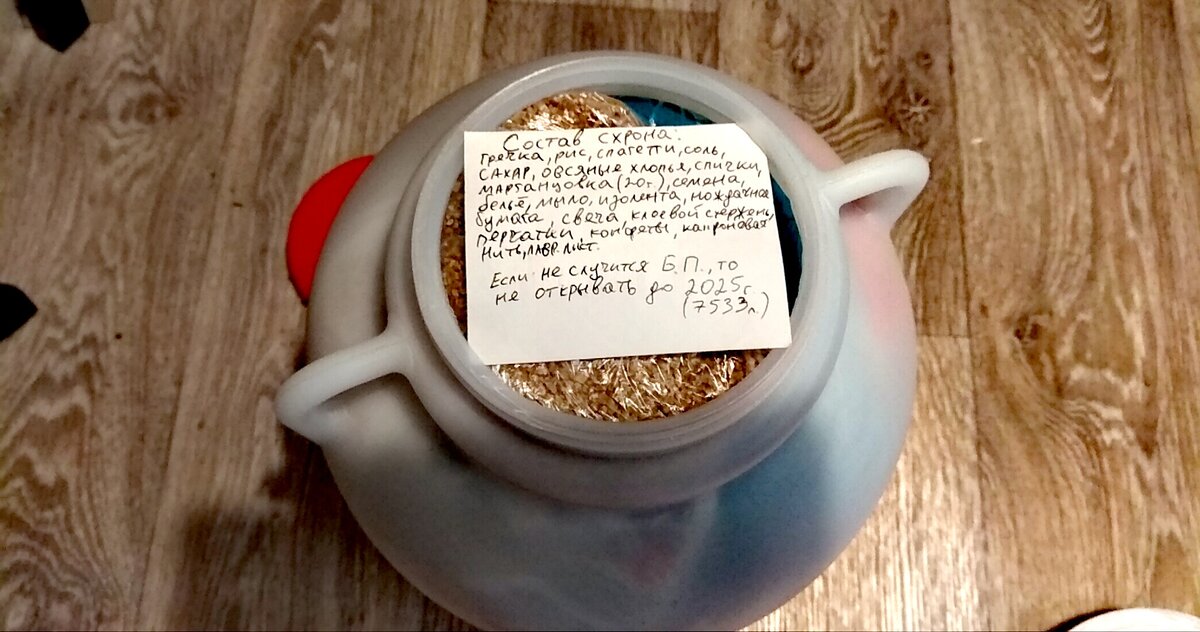 Состав схрона:
гречка, рис, спагетти, соль,
сахар, овсяные хлопья, спички,
марганцовка (20г.), семена,
бельё, мыло, изолента, нождачная
бумага, свеча, клеевой стержень,
перчатки, конфеты, капроновая
нить, лавр. лист.
Если не случится Б.П., то
не открывать до 2025г.
(7533л.)